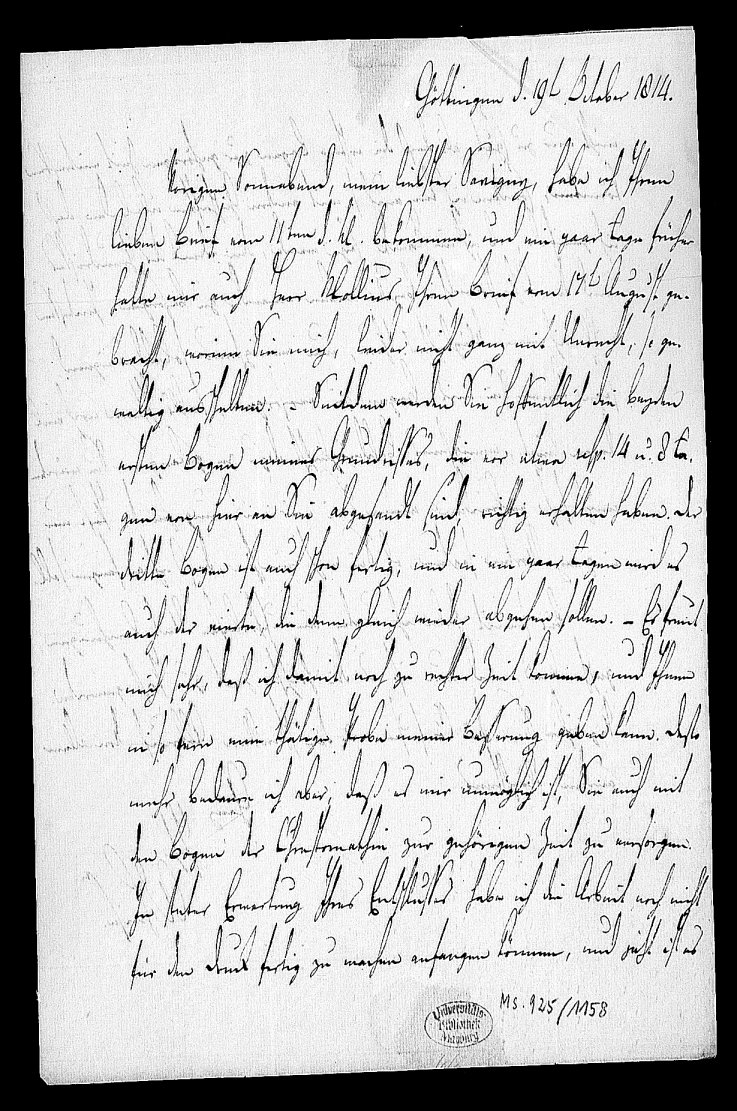 Göttingen d. 19t October 1814.
Vorigen Sonnabend, mein liebster Savigny, habe ich Ihren
lieben Brief vom 11ten d. M. bekommen, und ein paar Tage früher
hatte mir auch Herr Mollius Ihren Brief vom 17t August ge-
bracht, worinn Sie mich, leider nicht ganz mit Unrecht, so ge-
waltig ausschelten. – Seitdem werden Sie hoffentlich die beyden
ersten Bogen meines Grundrisses, die vor etwa resp. 14 u. 8 Ta-
gen von hier an Sie abgesandt sind, richtig erhalten haben. Der
dritte Bogen ist auch schon fertig, und in ein paar Tagen wird es
auch der vierte, die dann gleich wieder abgehen sollen. – Es freut
mich sehr, daß ich damit noch zu rechter Zeit komme, und Ihnen
in so fern eine thätige Probe meiner Besserung geben kann. Desto
mehr bedaure ich aber, daß es mir unmöglich ist, Sie auch mit
den Bogen der Chrestomathie zur gehörigen Zeit zu versorgen.
In steter Erwartung Ihres Entschlusses habe ich die Arbeit noch nicht
für den Druck fertig zu machen anfangen können, und jetzt ist es
Ms. 925/1158
Universitäts
Bibliothek
Marburg